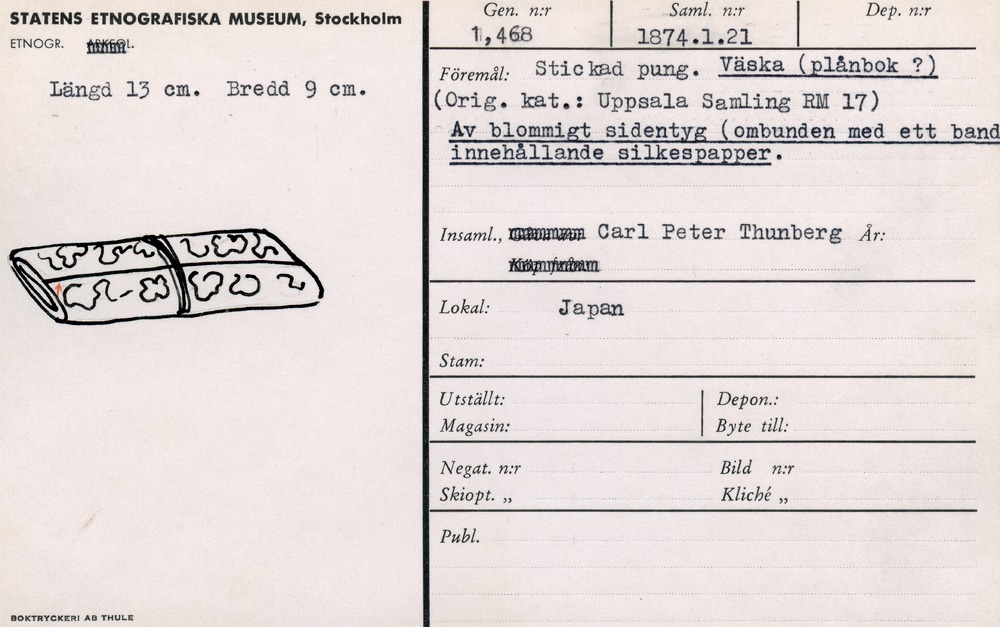 STATENS ETNOGRAFISKA MUSEUM, Stockholm
ETNOGR.
Längd 13 cm. Bredd 9 cm.
BOKTRYCKERI AB THULE
Gen. n:r Saml. n:r Dep. n:r
1,468 1874.1.21
Föremål: Stickad pung. Väska (plånbok ?)
(Orig. kat.: Uppsala Samling RM 17)
Av blommigt sidentyg (ombunden med ett band
innehållande silkespapper.
Insaml., Carl Peter Thunberg År:
Lokal: Japan
Stam:
Utställt: Depon.:
Magasin: Byte till:
Negat. n:r Bild n:r
Skiopt. „ Kliché „
Publ.